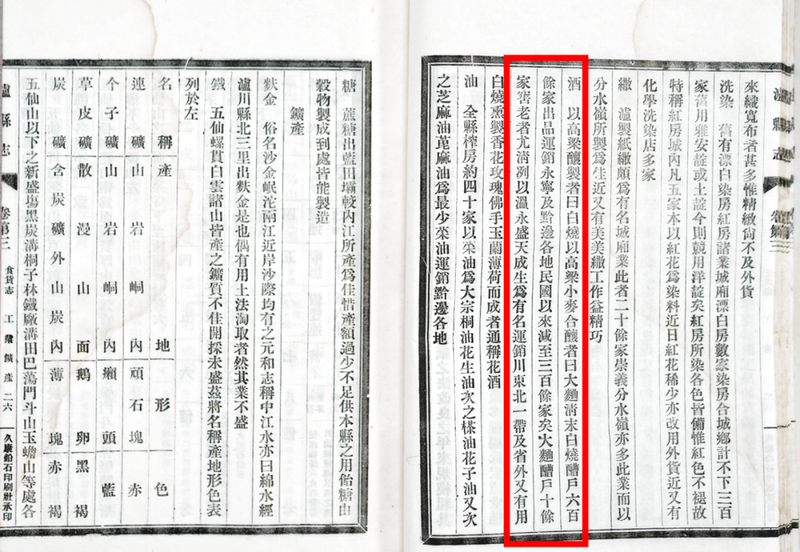 瀘縣志
來織寬布者甚多惟精緻尚不及外貨
洗染 舊有漂白染房紅房諸業城廂漂白房數家染房合城鄉計不下三百
家舊用雅安靛或土靛今則競用洋靛矣紅房所染各色皆備惟紅色不褪故
特稱紅房城內凡五家本以紅花爲染料近日紅花稀少亦改用外貨近又有
化學洗染店多家
繖 瀘製紙繖頗爲有名城廂業此者二十餘家崇義分水嶺亦多此業而以
分水嶺所製爲佳近又有美美繖工作益精巧
酒 以高粱釀製者曰白燒以高粱小麥合釀者曰大麯淸末白燒醩戶六百
餘家出品運銷永寧及黔邊各地民國以來減至三百餘家矣大麯醩戶十餘
家窖老者尤淸洌以溫永盛天成生爲有名運銷川東北一帶及省外又有用
白燒熏製香花玫瑰佛手玉蘭薄荷而成者通稱花酒
油 全縣榨房約四十家以菜油爲大宗桐油花生油次之𣛮油花子油又次
之芝麻油萞麻油爲最少菜油運銷黔邊各地
糖 蔗糖出藍田壩較內江所產爲佳惜產額過少不足供本縣之用飴糖由
穀物製成到處皆能製造
鑛產
麩金 俗名沙金岷沱兩江近岸沙際均有之元和志稱中江水亦曰綿水經
瀘川縣北三里出麩金是也偶有用土法淘取者然其業不盛
鐵 五仙螺貫白雲諸山皆產之鑛質不佳開採未盛茲將名稱產地形色表
列於左
名稱 產地 形色
連鑛 山岩峒內 頑石塊赤
个子鑛 山岩峒內 癩頭藍
草皮鑛 散漫山面 鵝卵黑褐
炭鑛 含炭鑛外山炭內 薄塊赤褐
五仙山以下之新盛塲黑炭溝桐子林鐵廠溝田巴蕩門斗山玉蟾山等處各
瀘縣志
卷第三 食貨志 工業 鑛產 二六
久康鉛石印刷社承印